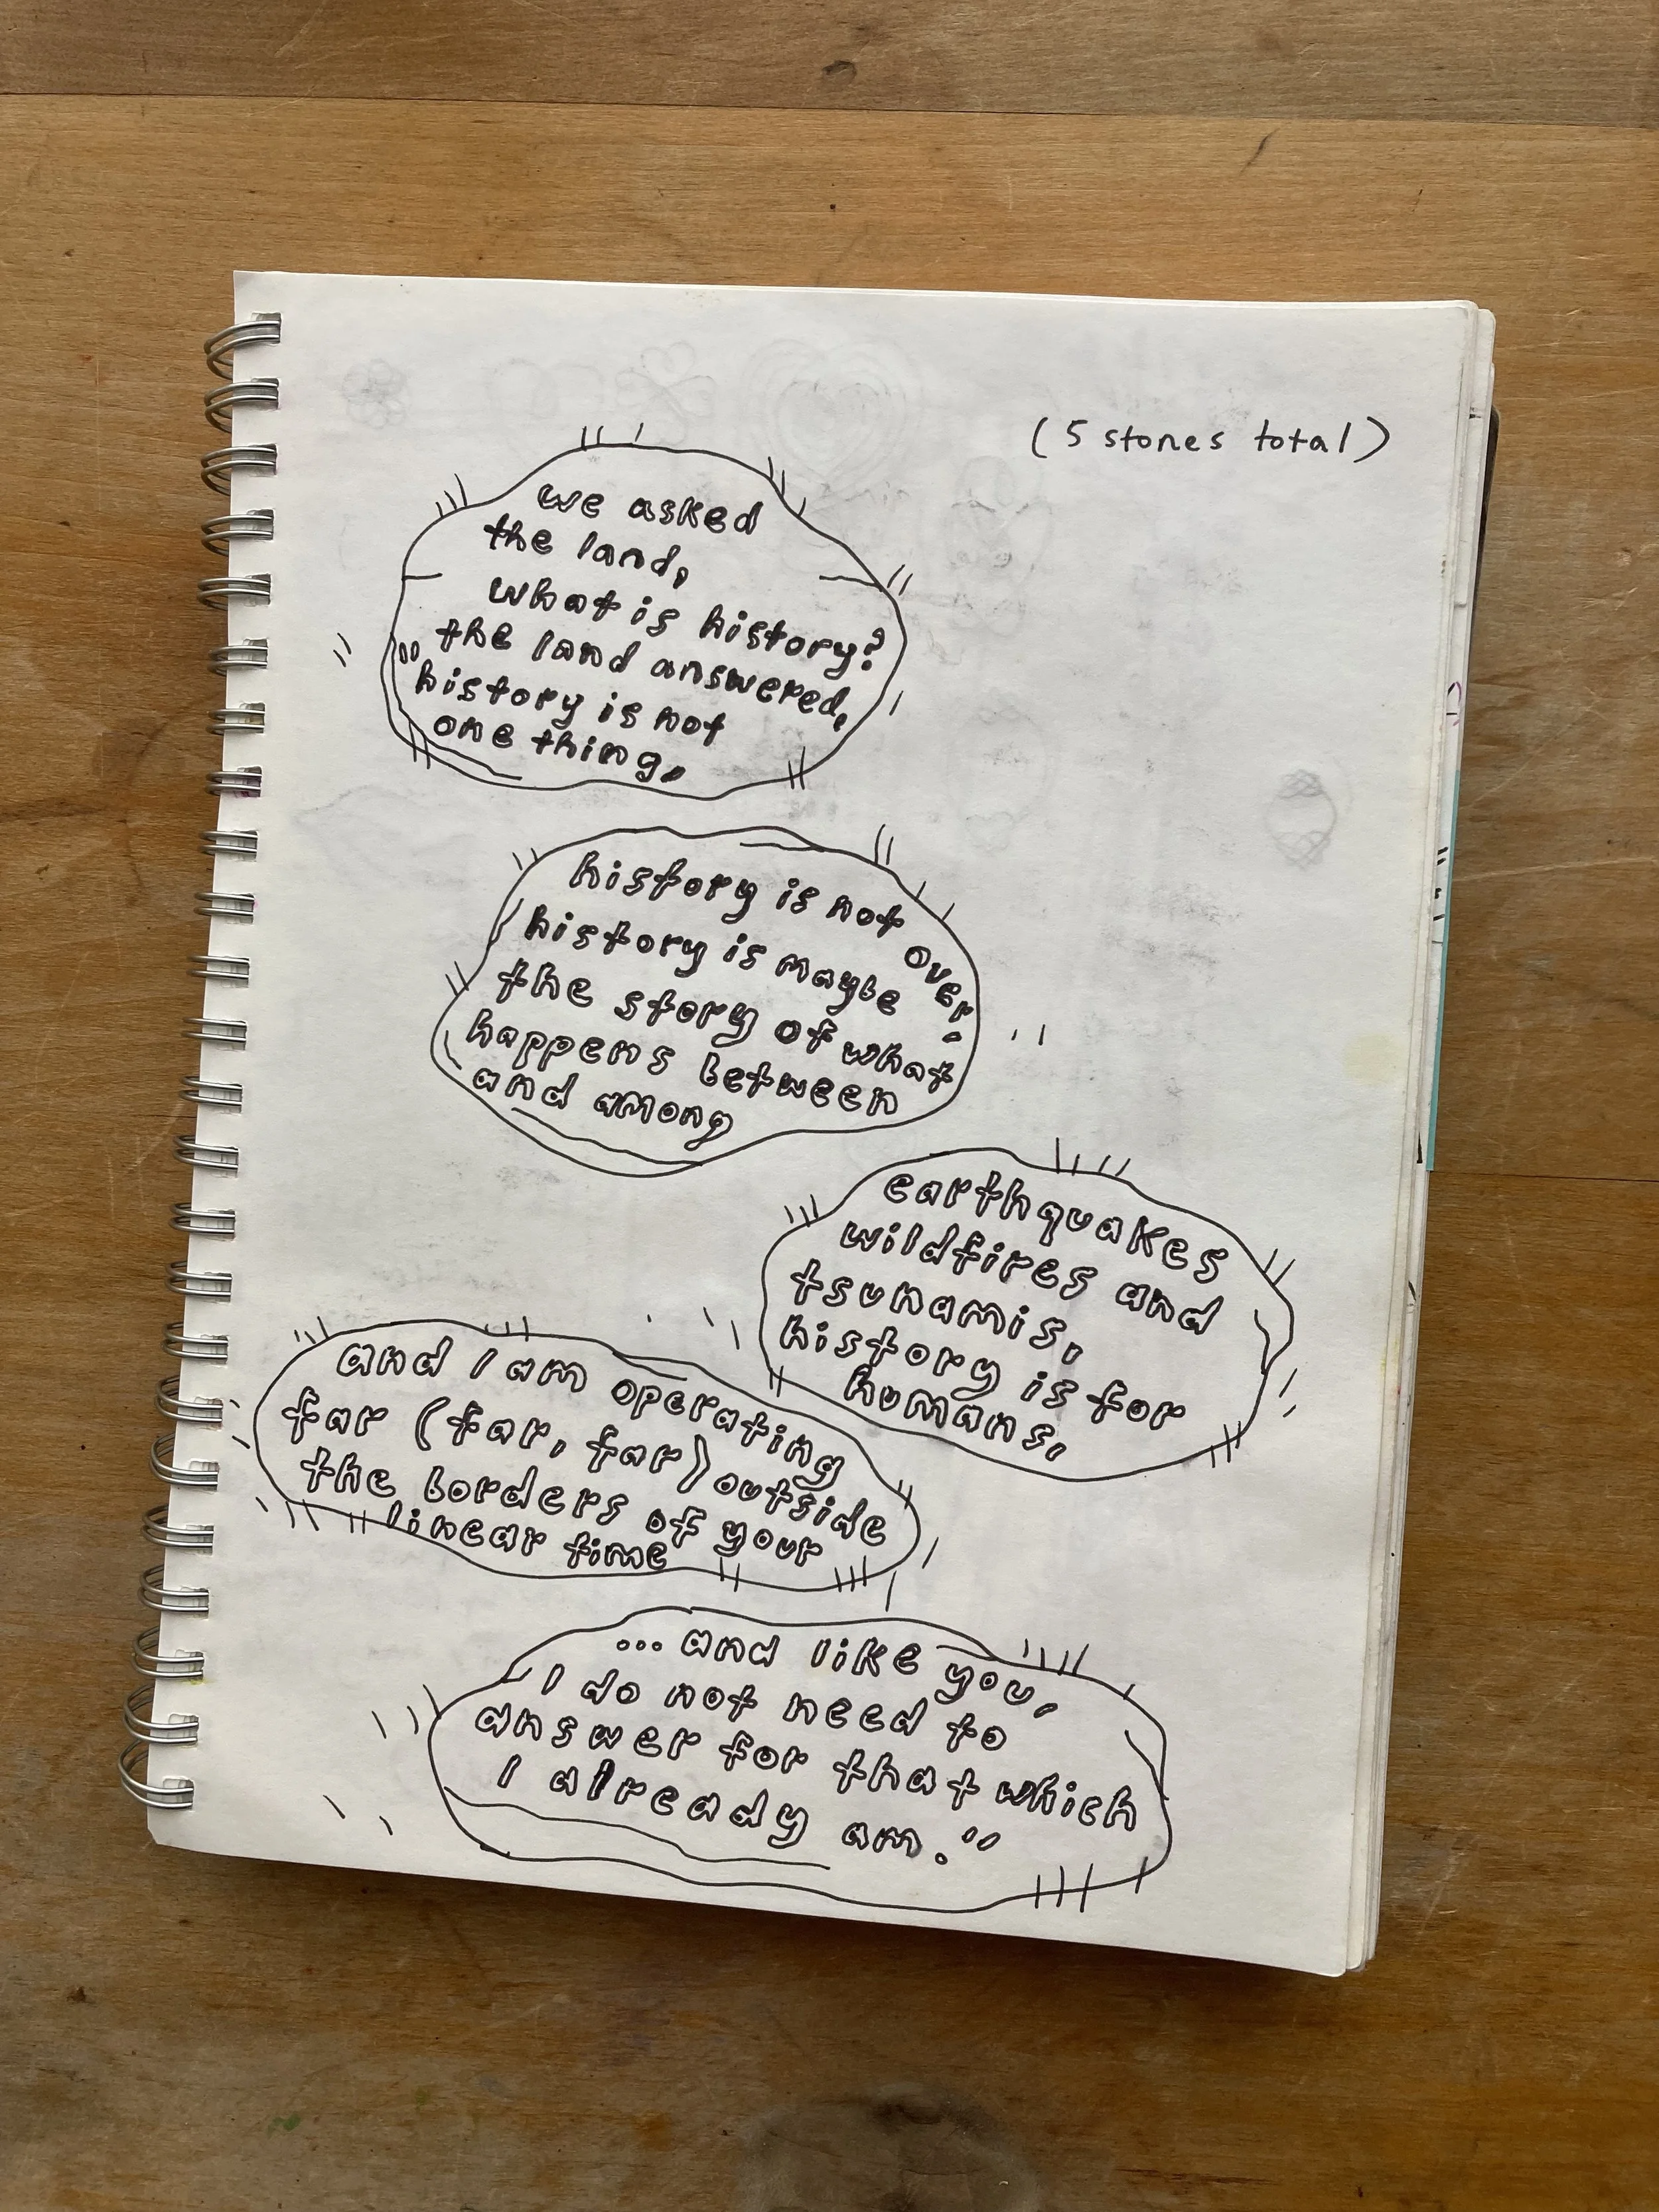 (5 stones total)
we asked
the land,
what is history?
the land answered,
"history is not
one thing,
history is not over.
history is maybe
the story of what
happens between
and among
earthquakes
wildfires and
tsunamis,
history is for
humans,
and I am operating
far (far, far) outside
the borders of your
linear time
...and like you,
I do not need to
answer for that which
I already am."